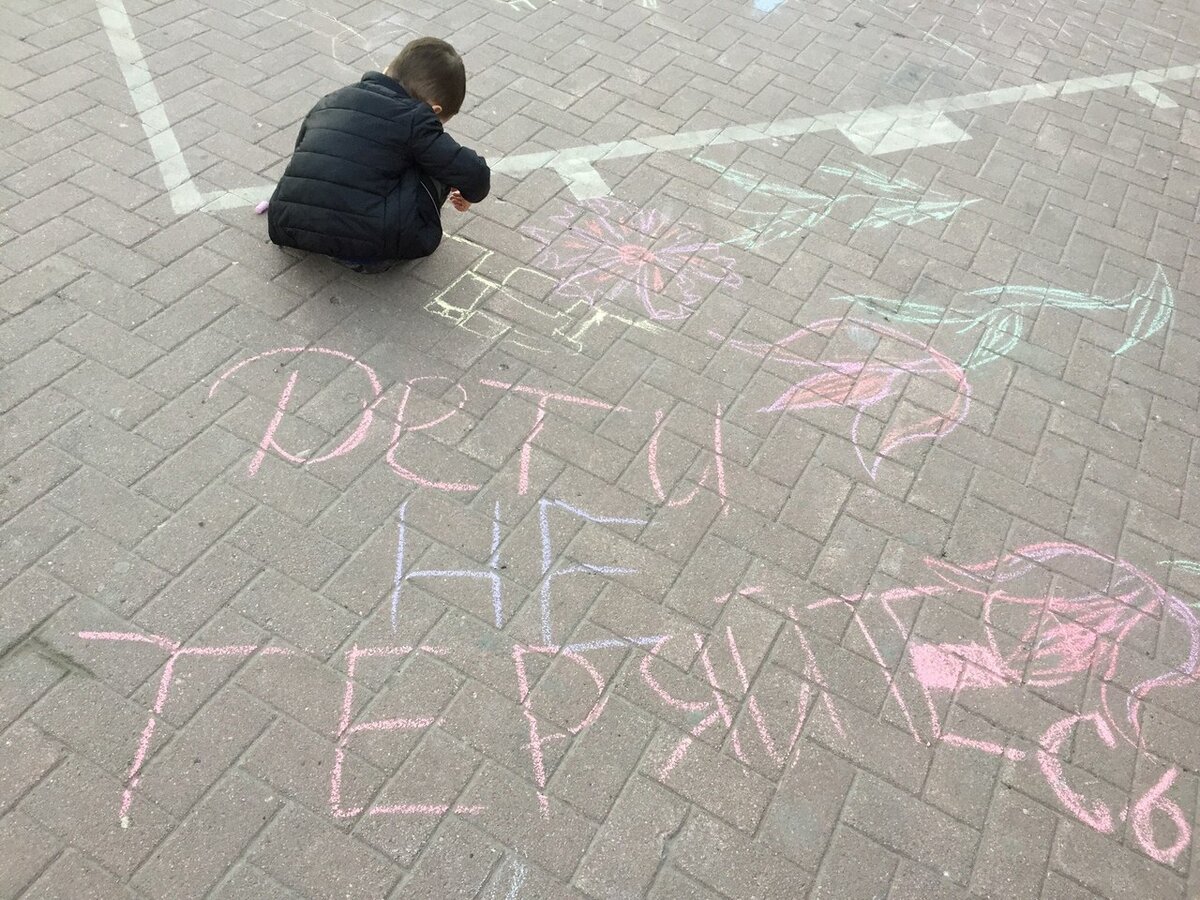 Дети
НЕ
ТЕРЯЙТЕСЬ